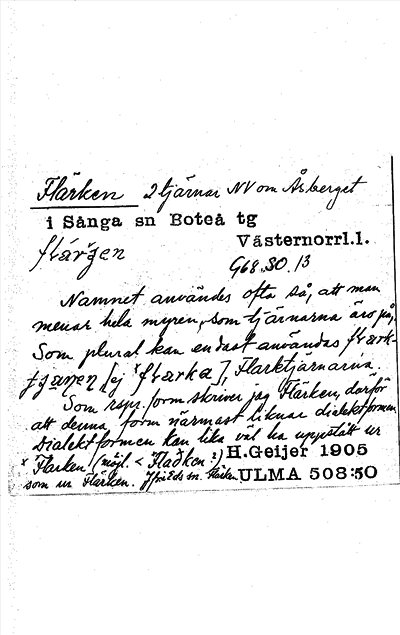 Flärken 2 tjärnar NV om Åsberget
i Sånga sn Boteå tg
Västernorrl.l.
G68.SO.13
Namnet användes ofta så, att man
menar hela myren, som tjärnarna äro på.
Som plural kan endast användas
[ej Flarktjärnarna.
Som repr. form skriver jag Flärken, därför
att denna form närmast liknar dialektformen.
Dialektformen kan lika väl ha uppstått ur
*Flarken (möjl. < *Fladken?) H.Geijer 1905
som ur Flärken. Jfr Eds sn. Flarken ULMA 508:50